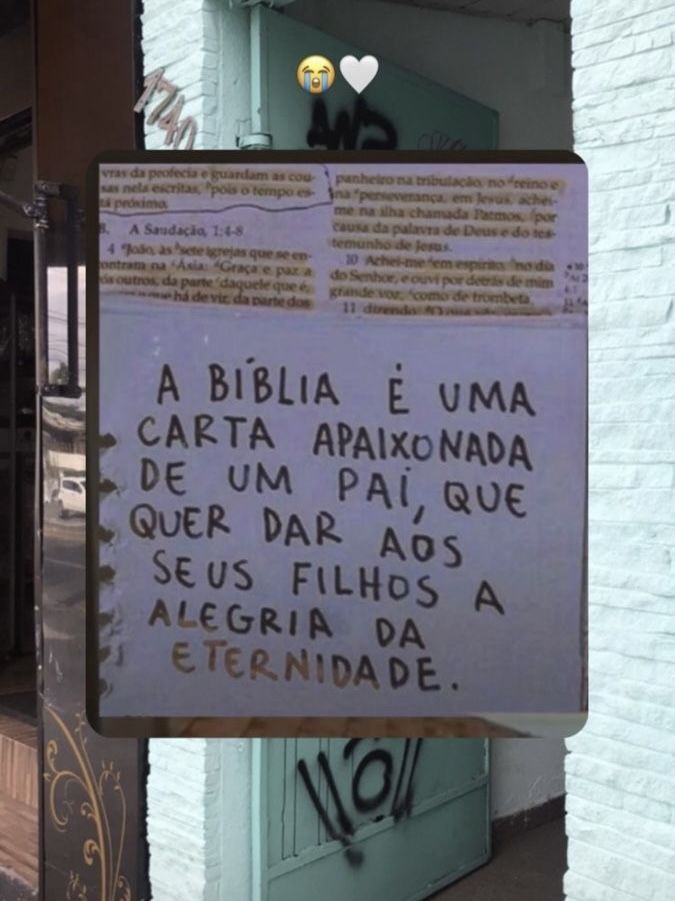 😭🤍
1740
vras da profecia e guardam as cou-
sas nela escritas, pois o tempo es-
tá próximo.
B. A Saudação, 1:4-8
4 João, às sete igrejas que se en-
contram na Ásia: Graça e paz a
vós outros, da parte daquele que é,
que há de vir, da parte dos
panheiro na tribulação, no reino e
na perseverança, em Jesus, achei-
me na ilha chamada Patmos, por
causa da palavra de Deus e do tes-
temunho de Jesus.
10 Achei-me em espírito, no dia
do Senhor, e ouvi por detrás de mim
grande voz, como de trombeta,
11 dizendo:
A BÍBLIA É UMA
CARTA APAIXONADA
DE UM PAI, QUE
QUER DAR AOS
SEUS FILHOS A
ALEGRIA DA
ETERNIDADE.